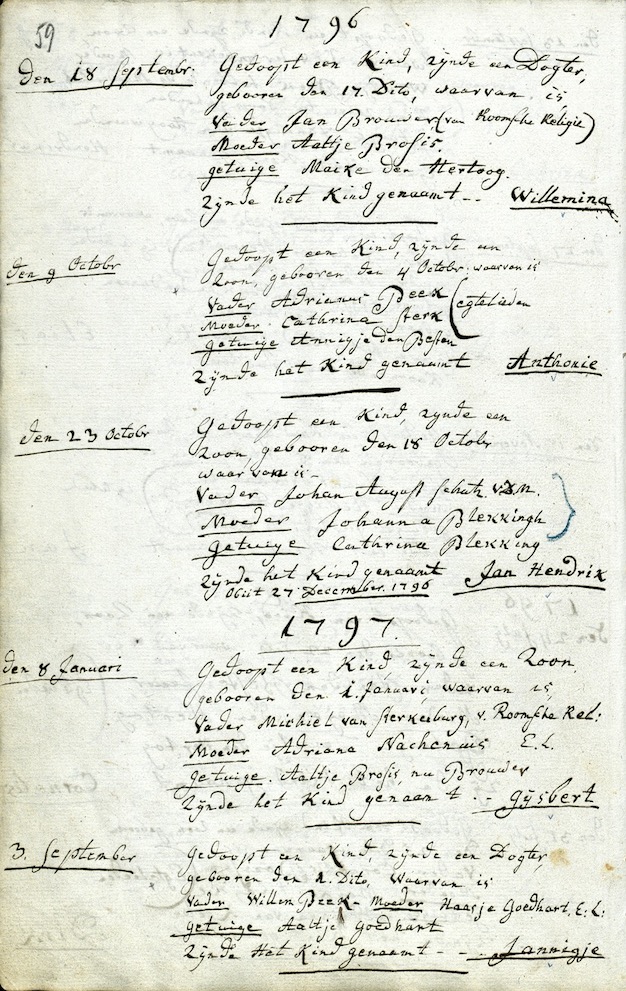 59
1796
den 18 Septembr:
Gedoopt een Kind, zÿnde een Dogter,
gebooren den 17. Dito, waarvan is
Vader Jan Brouwer, (van Roomsche Religie)
Moeder Aaltje Brosis.
getuige Maike den Hertoog.
Zÿnde het Kind genaamt -- Willemina
den 9 Octobr
Gedoopt een Kind, zÿnde een
Zoon, gebooren den 4 Octobr. waarvan is
Vader Adrianus Beek
Moeder. Cathrina Sterk (egtelieden
getuige Annigje den Besten
Zÿnde het Kind genaamt Anthonie
den 23 Octobr
Gedoopt een Kind, zÿnde een
Zoon, gebooren den 18 Octobr
waar van is -
Vader Johan August Schutz. V.D.M.
Moeder Johanna Blekkingh
getuige Cathrina Blekking
Zÿnde het Kind genaamt Jan Hendrik
Obiit 27 December 1796
1797.
den 8 Januari
Gedoopt een Kind, zÿnde een Zoon,
gebooren den 1. Januari, waarvan is,
Vader Michiel van Sterkenburg, v. Roomsche Rel:
Moeder Adriana E.L.
getuige. Aaltje Brosis, nu Brouwer
Zÿnde het Kind genaamt -- Gÿsbert
3. September
gedoopt een Kind, zÿnde een Dogter,
gebooren den 1. Dito, waarvan is
Vader Willem Beek - Moeder Haasje Goedhart. E: L:
getuige Aaltje Goedhart
Zÿnde Het Kind genaamt - - Jannigje